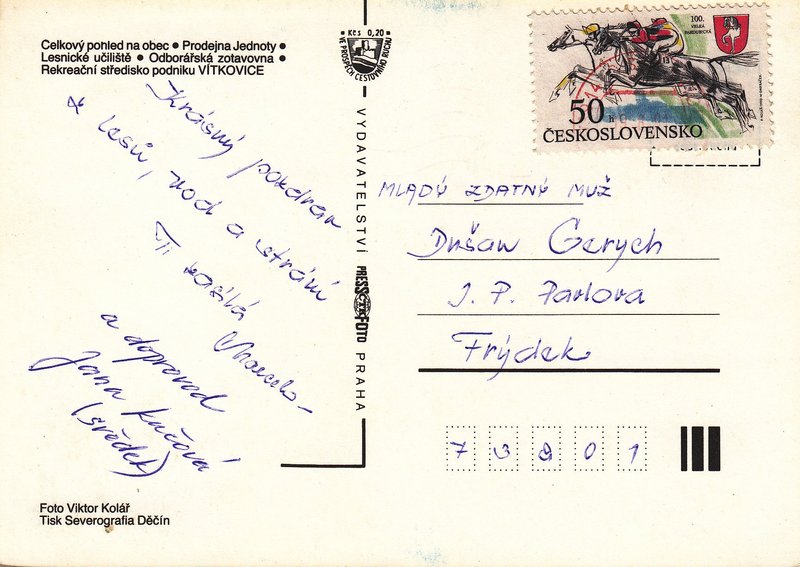 Celkový pohled na obec • Prodejna Jednoty •
Lesnické učiliště • Odborářská zotavovna •
Rekreační středisko podniku VÍTKOVICE
Kčs 0,20
VE PROSPĚCH CESTOVNÍHO RUCHU
100.
VELKÁ
PARDUBICKÁ
50 h
ČESKOSLOVENSKO
Krásný pozdrav
z lesů, vod a strání
Ti posílá
a doprovod
Jana
VYDAVATELSTVÍ PRESSFOTO PRAHA
MLADÝ ZDATNÝ MUŽ
Dušan Gerych
J. P. Pavlova
Frýdek
73801
Foto Viktor Kolář
Tisk Severografia Děčín